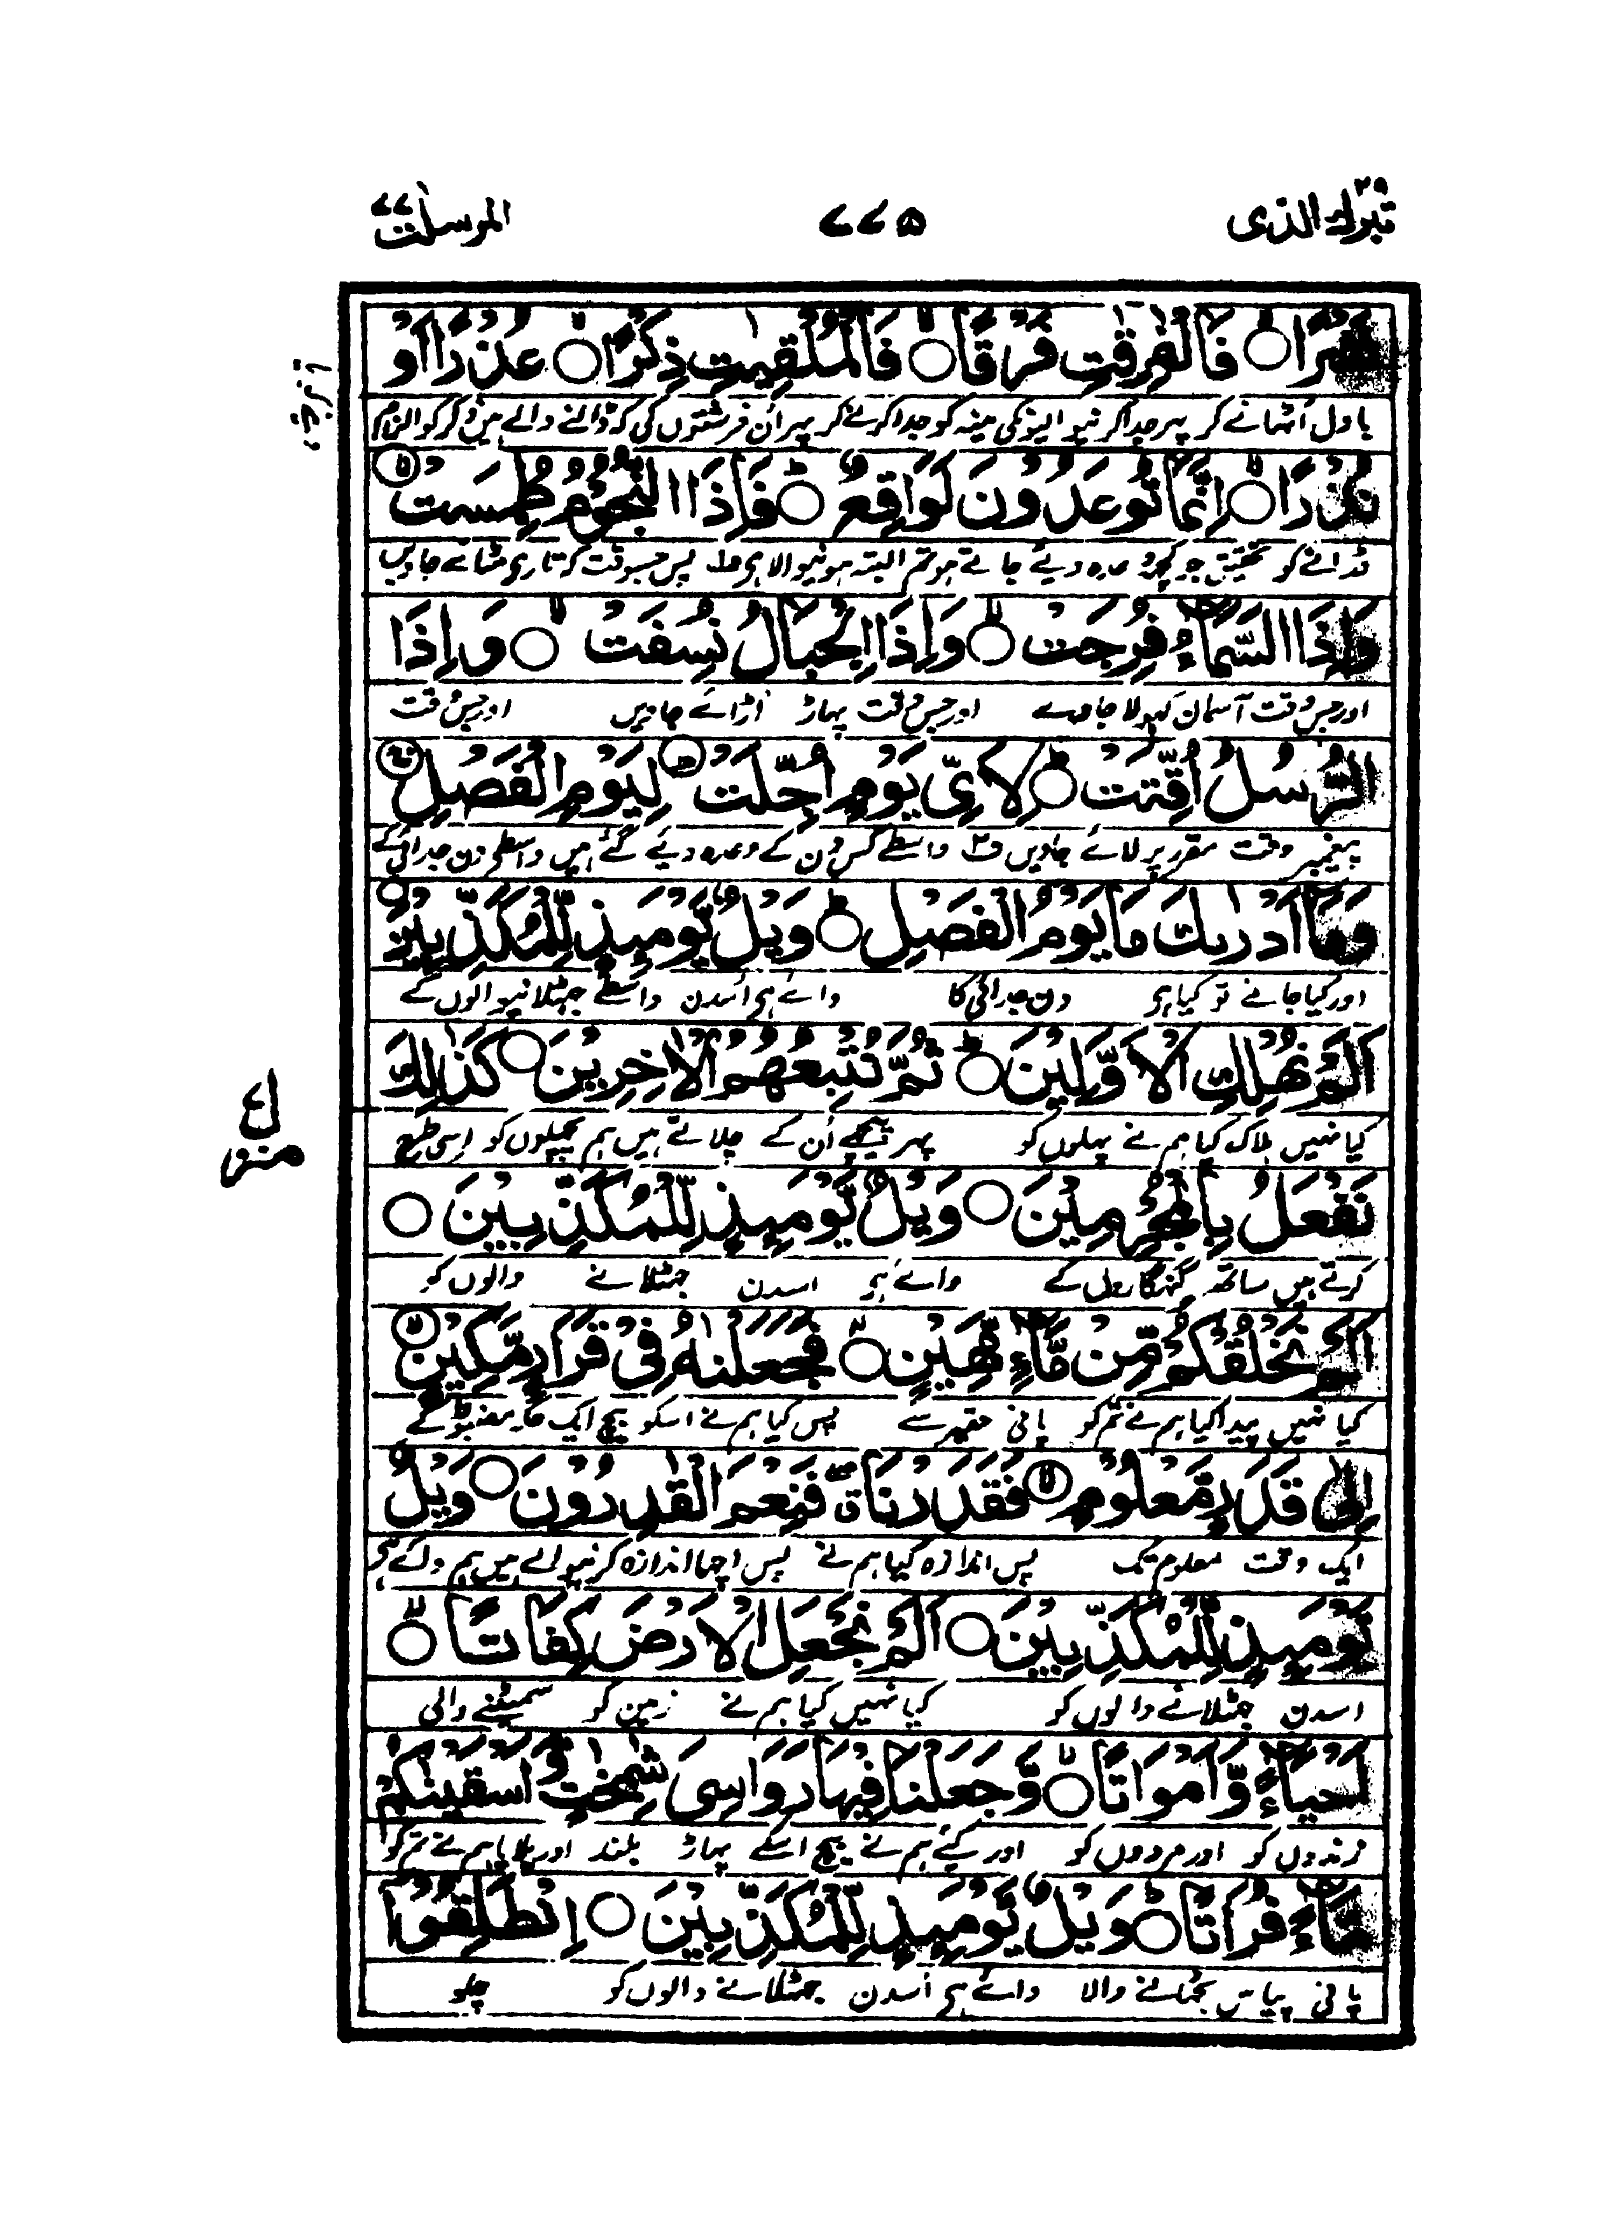 تبٰرك الذی ۲۹
۷۷۵
المرسلٰت ۷۷
نَشْرًا ۝ فَالْفٰرِقٰتِ فَرْقًا ۝ فَالْمُلْقِیٰتِ ذِكْرًا ۝ عُذْرًا اَوْ
بادل اُٹھانے کر پہر جدا کر نیوالیونکی مینہ کو جدا کرنے کر پہر اُن فرشتوں کی کہ ڈالنے والے ہیں ذکر کو الزام
نُذْرًا ۝ اِنَّمَا تُوْعَدُوْنَ لَوَاقِعٌ ۝ فَاِذَا النُّجُوْمُ طُمِسَتْ
ڈرانے کو تحقیق جو کچھ وعدہ دیئے جاتے ہو تم البتہ ہونیوالا ہی پس جسوقت کہ تاری مٹائے جاویں
وَاِذَا السَّمَآءُ فُرِجَتْ ۝ وَاِذَا الْجِبَالُ نُسِفَتْ ۝ وَاِذَا
اور جس وقت آسمان کہولا جاوے اور جس وقت پہاڑ اُڑائے جاویں اور جس وقت
الرُّسُلُ اُقِّتَتْ ۝ لِاَیِّ یَوْمٍ اُجِّلَتْ لِیَوْمِ الْفَصْلِ
پیغمبر وقت مقرر پر لائے جاویں واسطے کس دن کے وعدہ دیئے گئے ہیں واسطے دن جدائی کے
وَمَآ اَدْرٰىكَ مَا یَوْمُ الْفَصْلِ ۝ وَیْلٌ یَّوْمَىِٕذٍ لِّلْمُكَذِّبِیْنَ
اور کیا جانے تو کیا ہی دن جدائی کا وائے ہی اُسدن واسطے جھٹلانیوالوں کے
اَلَمْ نُهْلِكِ الْاَوَّلِیْنَ ۝ ثُمَّ نُتْبِعُهُمُ الْاٰخِرِیْنَ ۝ كَذٰلِكَ
کیا نہیں ہلاک کیا ہم نے پہلوں کو پہر پیچھے اُن کے چلاتے ہیں ہم پچھلوں کو اِسی طرح
نَفْعَلُ بِالْمُجْرِمِیْنَ ۝ وَیْلٌ یَّوْمَىِٕذٍ لِّلْمُكَذِّبِیْنَ ۝
کرتے ہیں ساتھ گنہگاروں کے وائے ہی اسدن جھٹلانے والوں کو
اَلَمْ نَخْلُقْكُّمْ مِّنْ مَّآءٍ مَّهِیْنٍ ۝ فَجَعَلْنٰهُ فِیْ قَرَارٍ مَّكِیْنٍ
کیا نہیں پیدا کیا ہم نے تم کو پانی حقیر سے پس کیا ہم نے اسکو بیچ ایک جگہ مضبوط کے
اِلٰى قَدَرٍ مَّعْلُوْمٍ فَقَدَرْنَا فَنِعْمَ الْقٰدِرُوْنَ ۝ وَیْلٌ
ایک وقت معلوم تک پس اندازہ کیا ہم نے پس اچھا اندازہ کرنیوالے ہیں ہم وائے ہی
یَّوْمَىِٕذٍ لِّلْمُكَذِّبِیْنَ ۝ اَلَمْ نَجْعَلِ الْاَرْضَ كِفَاتًا ۝
اسدن جھٹلانے والوں کو کیا نہیں کیا ہم نے زمین کو سمیٹنے والی
اَحْیَآءً وَّاَمْوَاتًا ۝ وَّجَعَلْنَا فِیْهَا رَوَاسِیَ شٰمِخٰتٍ وَّاَسْقَیْنٰكُمْ
زندوں کو اور مردوں کو اور کیے ہم نے بیچ اسکے پہاڑ بلند اور پلایا ہم نے تم کو
مَّآءً فُرَاتًا ۝ وَیْلٌ یَّوْمَىِٕذٍ لِّلْمُكَذِّبِیْنَ ۝ اِنْطَلِقُوْٓا
پانی پیاس بجھانے والا وائے ہی اُسدن جھٹلانے والوں کو چلو
منزل